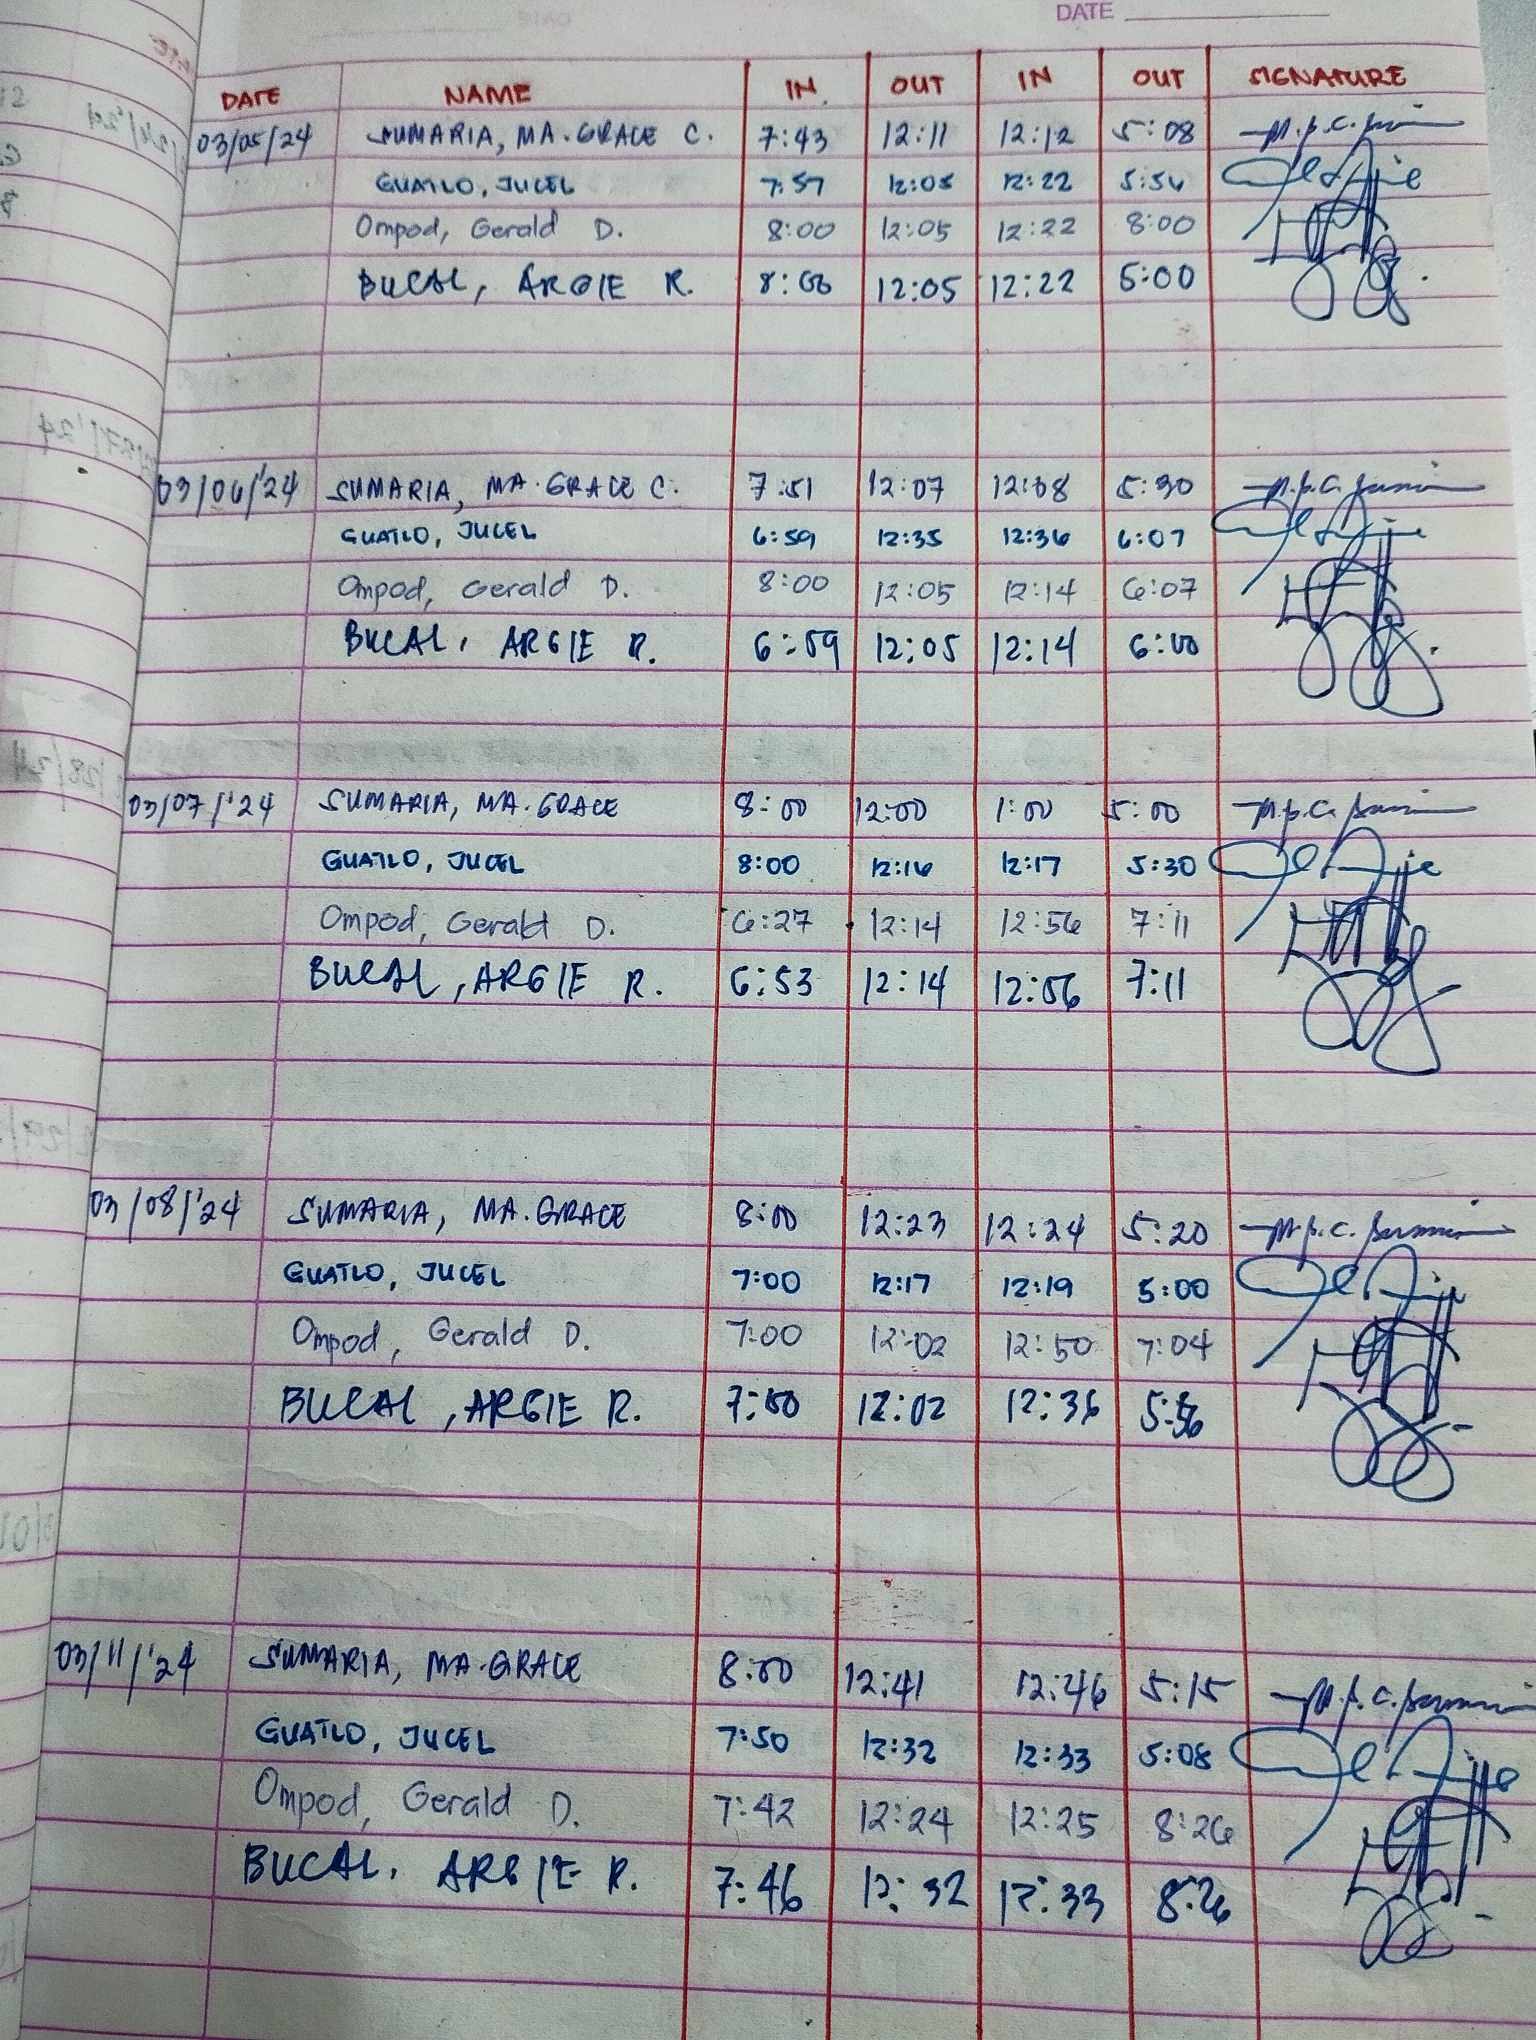 DATE
DATE NAME IN OUT IN OUT SIGNATURE
03/05/24 SUMARIA, MA. GRACE C. 7:43 12:11 12:12 5:08
GUATLO, JUCEL 7:57 12:05 12:22 5:54
Ompod, Gerald D. 8:00 12:05 12:22 8:00
BUCAL, ARGIE R. 8:00 12:05 12:22 5:00
03/06/'24 SUMARIA, MA. GRACE C. 7:51 12:07 12:08 5:30
GUATLO, JUCEL 6:59 12:35 12:36 6:07
Ompod, Gerald D. 8:00 12:05 12:14 6:07
BUCAL, ARGIE R. 6:59 12:05 12:14 6:00
03/07/'24 SUMARIA, MA. GRACE 8:00 12:00 1:00 5:00
GUATLO, JUCEL 8:00 12:16 12:17 5:30
Ompod, Gerald D. 6:27 12:14 12:56 7:11
BUCAL, ARGIE R. 6:53 12:14 12:56 7:11
03/08/'24 SUMARIA, MA. GRACE 8:00 12:23 12:24 5:20
GUATLO, JUCEL 7:00 12:17 12:19 5:00
Ompod, Gerald D. 7:00 12:02 12:50 7:04
BUCAL, ARGIE R. 7:00 12:02 12:36
03/11/'24 SUMARIA, MA. GRACE 8:00 12:41 12:46 5:15
GUATLO, JUCEL 7:50 12:32 12:33 5:08
Ompod, Gerald D. 7:42 12:24 12:25 8:26
BUCAL, ARGIE R. 7:46 12:32 12:33 8:26